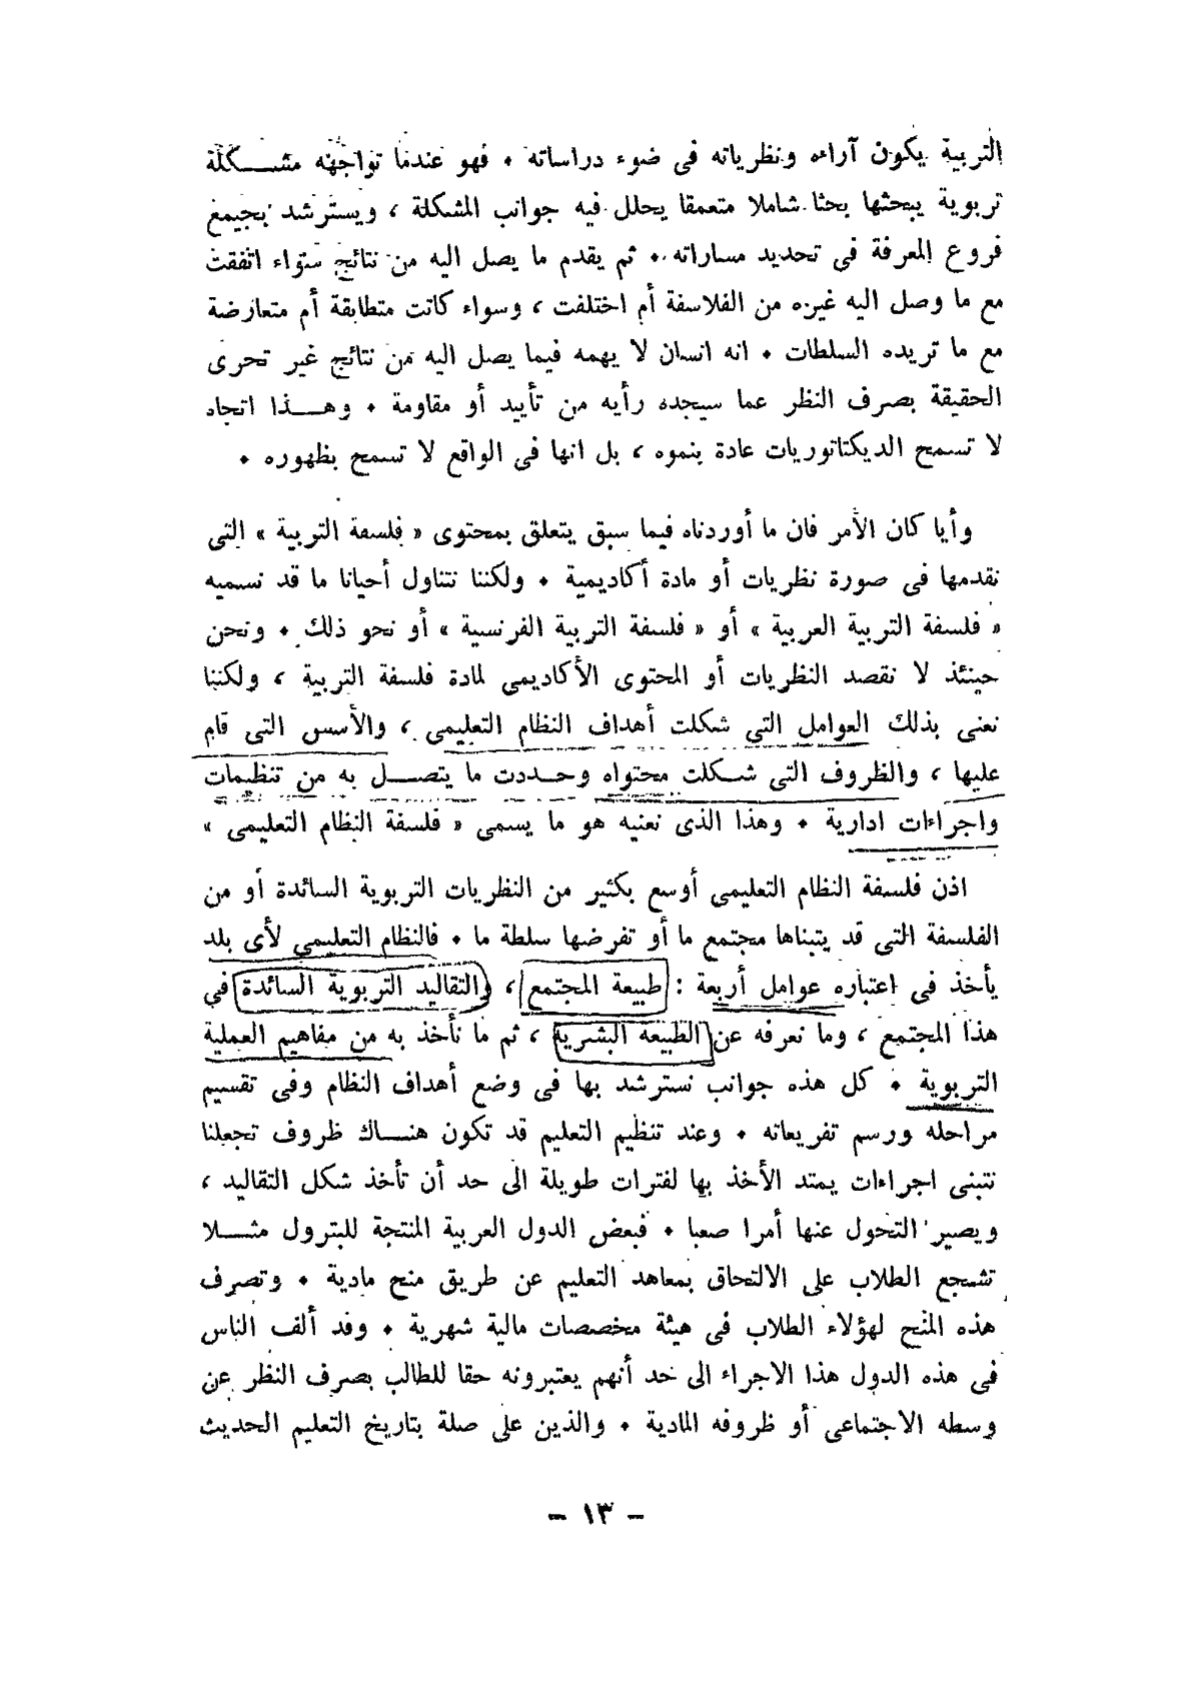 التربية يكون آراءه ونظرياته فى ضوء دراساته • فهو عندما تواجهه مشـــكلة
تربوية يبحثها بحثا شاملا متعمقا يحلل فيه جوانب المشكلة ، ويسترشد بجيمع
فروع المعرفة فى تحديد مساراته • ثم يقدم ما يصل اليه من نتائج سواء اتفقت
مع ما وصل اليه غيره من الفلاسفة أم اختلفت ، وسواء كانت متطابقة أم متعارضة
مع ما تريده السلطات • انه انسان لا يهمه فيما يصل اليه من نتائج غير تحرى
الحقيقة بصرف النظر عما سيجده رأيه من تأييد أو مقاومة • وهـــذا اتجاه
لا تسمح الديكتاتوريات عادة بنموه ، بل انها فى الواقع لا تسمح بظهوره •
وأيا كان الأمر فان ما أوردناه فيما سبق يتعلق بمحتوى « فلسفة التربية » التى
نقدمها فى صورة نظريات أو مادة أكاديمية • ولكننا نتناول أحيانا ما قد نسميه
« فلسفة التربية العربية » أو « فلسفة التربية الفرنسية » أو نحو ذلك • ونحن
حينئذ لا نقصد النظريات أو المحتوى الأكاديمى لمادة فلسفة التربية ، ولكننا
نعنى بذلك العوامل التى شكلت أهداف النظام التعليمى ، والأسس التى قام
عليها ، والظروف التى شـــكلت محتواه وحـــددت ما يتصـــل به من تنظيمات
واجراءات ادارية • وهذا الذى نعنيه هو ما يسمى « فلسفة النظام التعليمى »
اذن فلسفة النظام التعليمى أوسع بكثير من النظريات التربوية السائدة أو من
الفلسفة التى قد يتبناها مجتمع ما أو تفرضها سلطة ما • فالنظام التعليمى لأى بلد
يأخذ فى اعتباره عوامل أربعة : طبيعة المجتمع ، والتقاليد التربوية السائدة في
هذا المجتمع ، وما نعرفه عن الطبيعة البشرية ، ثم ما نأخذ به من مفاهيم العملية
التربوية • كل هذه جوانب نسترشد بها فى وضع أهداف النظام وفى تقسيم
مراحله ورسم تفريعاته • وعند تنظيم التعليم قد تكون هنـــاك ظروف تجعلنا
نتبنى اجراءات يمتد الأخذ بها لفترات طويلة الى حد أن تأخذ شكل التقاليد ،
ويصير التحول عنها أمرا صعبا • فبعض الدول العربية المنتجة للبترول مثـــلا
تشجع الطلاب على الالتحاق بمعاهد التعليم عن طريق منح مادية • وتصرف
هذه المنح لهؤلاء الطلاب فى هيئة مخصصات مالية شهرية • وقد ألف الناس
فى هذه الدول هذا الاجراء الى حد أنهم يعتبرونه حقا للطالب بصرف النظر عن
وسطه الاجتماعى أو ظروفه المادية • والذين على صلة بتاريخ التعليم الحديث
– ١٣ –